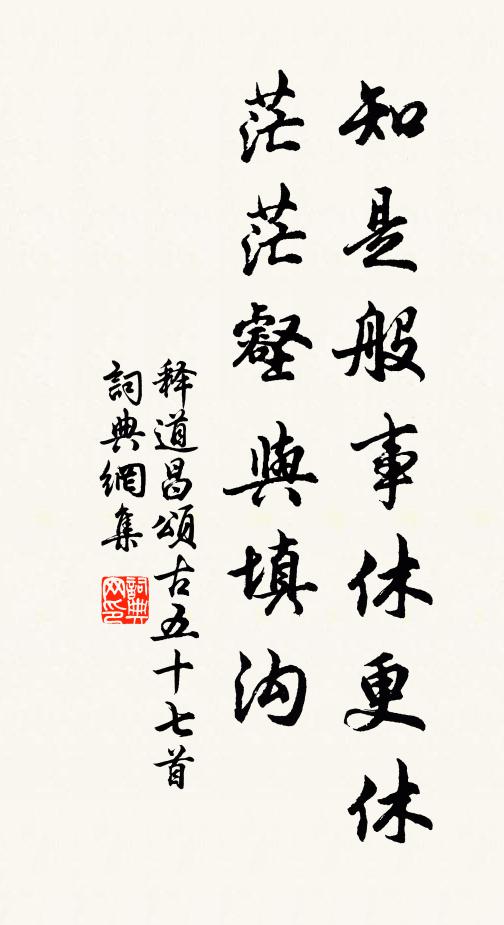 知是般事休更休
茫茫壑與填沟
释道昌頌古五十七首
詞典網集
詞典
网印